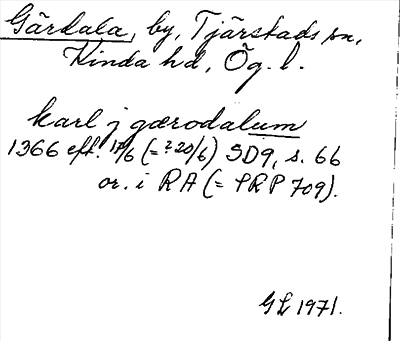 Gärdala, by, Tjärstads sn,
Kinda hd, Ög. l.
karl j gærodalum
1366 eft. 17/6 (= ? 20/6) SD9, s. 66
or. i RA (= SRP 709).
GL 1971.